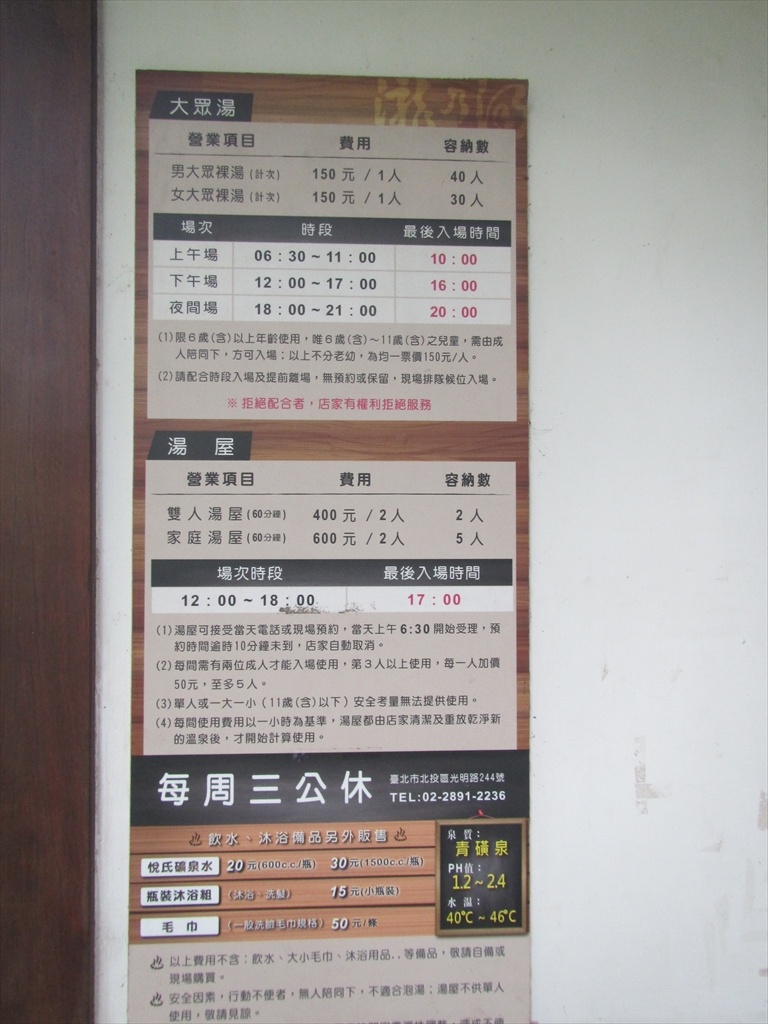 大眾湯
營業項目 費用 容納數
男大眾裸湯(計次) 150 元 / 1人 40 人
女大眾裸湯(計次) 150 元 / 1人 30 人
場次 時段 最後入場時間
上午場 06：30 ~ 11：00 10：00
下午場 12：00 ~ 17：00 16：00
夜間場 18：00 ~ 21：00 20：00
(1)限6歲(含)以上年齡使用，唯6歲(含)～11歲(含)之兒童，需由成
人陪同下，方可入場；以上不分老幼，為均一票價150元/人。
(2)請配合時段入場及提前離場，無預約或保留，現場排隊候位入場。
※ 拒絕配合者，店家有權利拒絕服務
湯 屋
營業項目 費用 容納數
雙人湯屋(60分鐘) 400 元 / 2人 2 人
家庭湯屋(60分鐘) 600 元 / 2人 5 人
場次時段 最後入場時間
12：00 ~ 18：00 17：00
(1)湯屋可接受當天電話或現場預約，當天上午6:30開始受理，預
約時間逾時10分鐘未到，店家自動取消。
(2)每間需有兩位成人才能入場使用，第3人以上使用，每一人加價
50元，至多5人。
(3)單人或一大一小（11歲(含)以下）安全考量無法提供使用。
(4)每間使用費用以一小時為基準，湯屋都由店家清潔及重放乾淨新
的溫泉後，才開始計算使用。
每周三公休
臺北市北投區光明路244號
TEL:02-2891-2236
飲水、沐浴備品另外販售
悅氏礦泉水 20元(600c.c./瓶) 30元(1500c.c./瓶)
瓶裝沐浴組 (沐浴、洗髮) 15元(小瓶裝)
毛巾 (一般洗臉毛巾規格) 50元/條
泉質：
青磺泉
PH值：
1.2~2.4
水溫：
40°C ~ 46°C
以上費用不含：飲水、大小毛巾、沐浴用品..等備品，敬請自備或
現場購買。
安全因素，行動不便者，無人陪同下，不適合泡湯；湯屋不供單人
使用，敬請見諒。